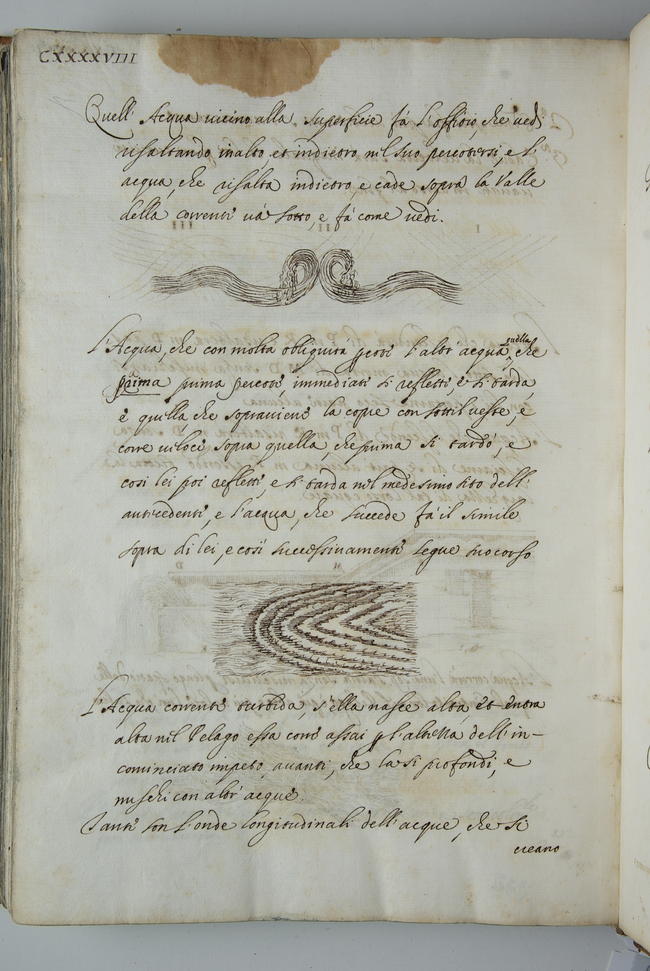 CXXXXVIII
Quell' Acqua vicino alla superficie fà l'offitio che vedi
risaltando in alto et indietro nel suo percotersi, e l'
acqua, che risalta indietro, e cade sopra la Valle
della corrente và sotto, e fà come vedi.
L'Acqua, che con molta obliquità percote l'altr' acqua, quella che
prima prima percote, immediate si reflette, e si tarda,
e quella, che sopraviene la copre con sottil veste, e
corre veloce sopra quella, che prima si tardò, e
così lei poi reflette, e si tarda nel medesimo sito dell'
antecedente, e l'acqua, che succede fà il simile
sopra di lei, e così successivamente segue suo corso
L'Acqua corrente turbida, s'ella nasce alta, et entra
alta nel Pelago essa corre assai p l'altezza dell' in-
cominciato impeto, avanti, che la si profondi, e
meschi con altr' acque.
Tante son l'onde longitudinali dell'acque, che si
creano